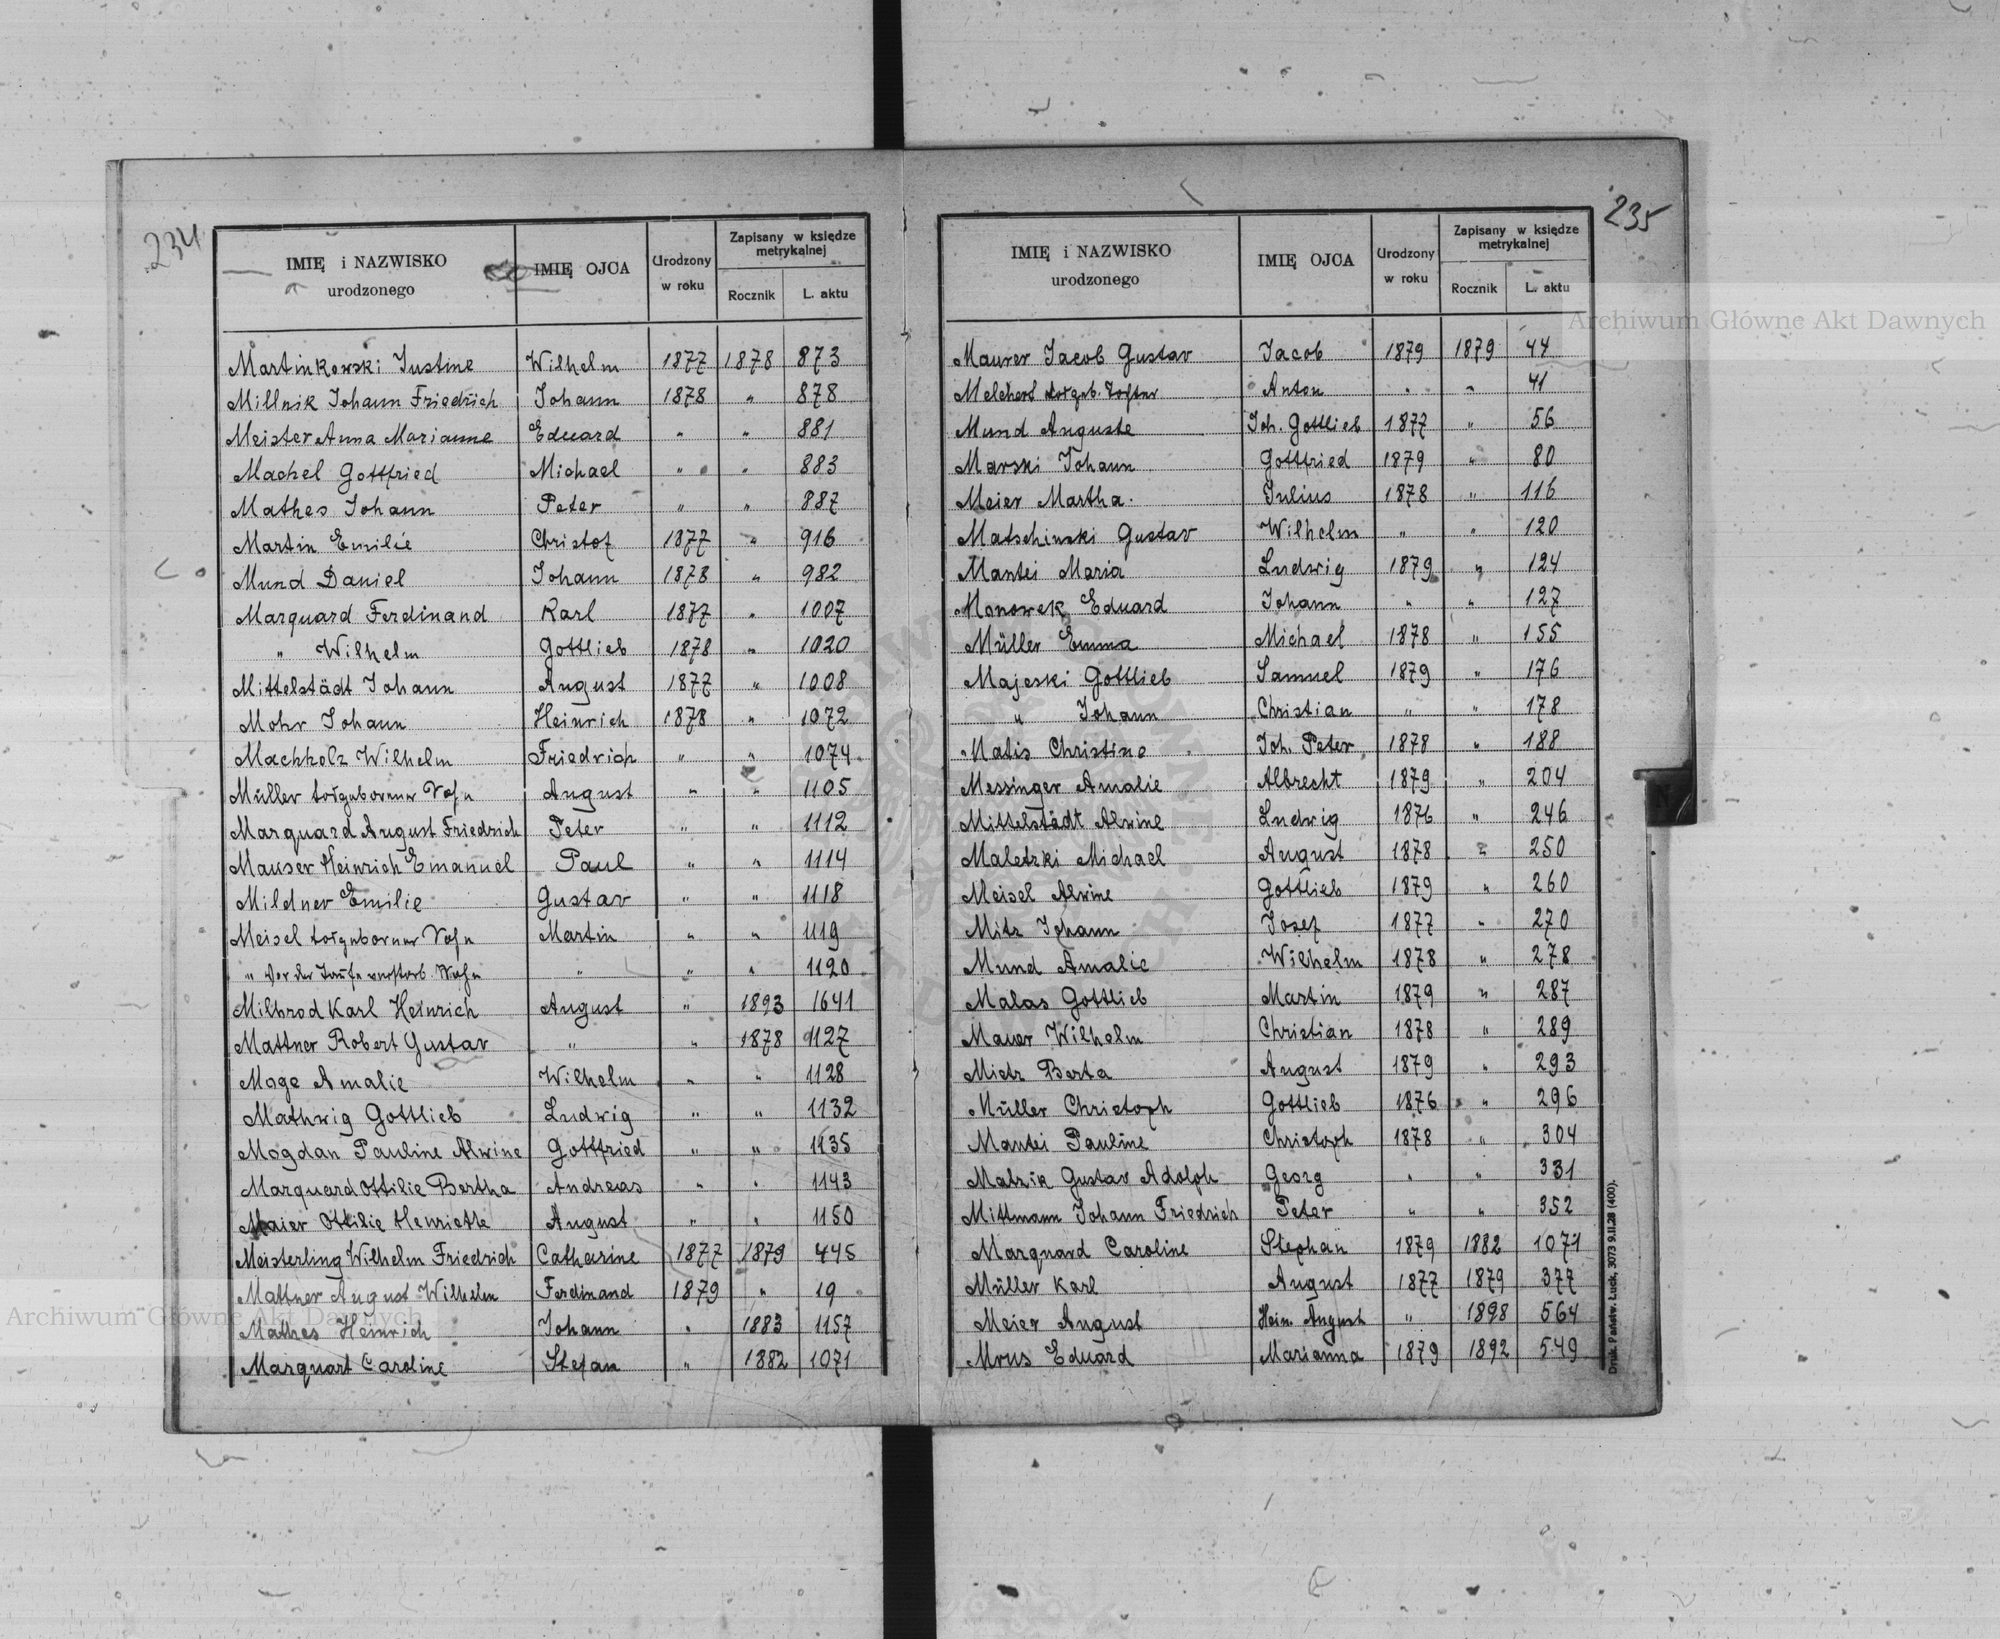 234
IMIĘ i NAZWISKO urodzonego IMIĘ OJCA Urodzony w roku Zapisany w księdze metrykalnej Rocznik L. aktu
Martinkowski Justine Wilhelm 1877 1878 873
Millnik Johann Friedrich Johann 1878 " 878
Meister Anna Marianne Eduard " " 881
Machel Gottfried Michael " " 883
Mathes Johann Peter " " 887
Martin Emilie Christof 1877 " 916
Mund Daniel Johann 1878 " 982
Marquard Ferdinand Karl 1877 " 1007
" Wilhelm Gottlieb 1878 " 1020
Mittelstädt Johann August 1877 " 1008
Mohr Johann Heinrich 1878 " 1072
Machholz Wilhelm Friedrich " " 1074
Müller totgeborener Sohn August " " 1105
Marquard August Friedrich Peter " " 1112
Mauser Heinrich Emanuel Paul " " 1114
Mildner Emilie Gustav " " 1118
Meisel totgeborener Sohn Martin " " 1119
" vor der Taufe verstorb. Sohn " " " 1120
Milbrod Karl Heinrich August " 1893 1641
Mattner Robert Gustav " " 1878 1127
Moge Amalie Wilhelm " " 1128
Mathwig Gottlieb Ludwig " " 1132
Mogdan Pauline Alwine Gottfried " " 1135
Marquard Ottilie Bertha Andreas " " 1143
Maier Ottilie Henriette August " " 1150
Meisterling Wilhelm Friedrich Catharine 1877 1879 445
Mattner August Wilhelm Ferdinand 1879 " 19
Mathes Heinrich Johann " 1883 1157
Marquart Caroline Stefan " 1882 1071
235
IMIĘ i NAZWISKO urodzonego IMIĘ OJCA Urodzony w roku Zapisany w księdze metrykalnej Rocznik L. aktu
Maurer Jacob Gustav Jacob 1879 1879 44
Melchert totgeb. Tochter Anton " " 41
Mund Auguste Joh. Gottlieb 1877 " 56
Marski Johann Gottfried 1879 " 80
Meier Martha Julius 1878 " 116
Matschinski Gustav Wilhelm " " 120
Mantei Maria Ludwig 1879 " 124
Monowek Eduard Johann " " 127
Müller Emma Michael 1878 " 155
Majeski Gottlieb Samuel 1879 " 176
" Johann Christian " " 178
Matis Christine Joh. Peter 1878 " 188
Messinger Amalie Albrecht 1879 " 204
Mittelstädt Alwine Ludwig 1876 " 246
Maletzki Michael August 1878 " 250
Meisel Alwine Gottlieb 1879 " 260
Mitz Johann Josef 1877 " 270
Mund Amalie Wilhelm 1878 " 278
Malas Gottlieb Martin 1879 " 287
Mauer Wilhelm Christian 1878 " 289
Mietz Berta August 1879 " 293
Müller Christoph Gottlieb 1876 " 296
Mantei Pauline Christoph 1878 " 304
Matzik Gustav Adolph Georg " " 331
Mittmann Johann Friedrich Peter " " 352
Marquard Caroline Stephan 1879 1882 1071
Müller Karl August 1877 1879 377
Meier August Hein. August " 1898 564
Mrus Eduard Marianna 1879 1892 549
Druk. Państw. Łuck, 3073 9.II.28 (400).
Archiwum Główne Akt Dawnych
Archiwum Główne Akt Dawnych